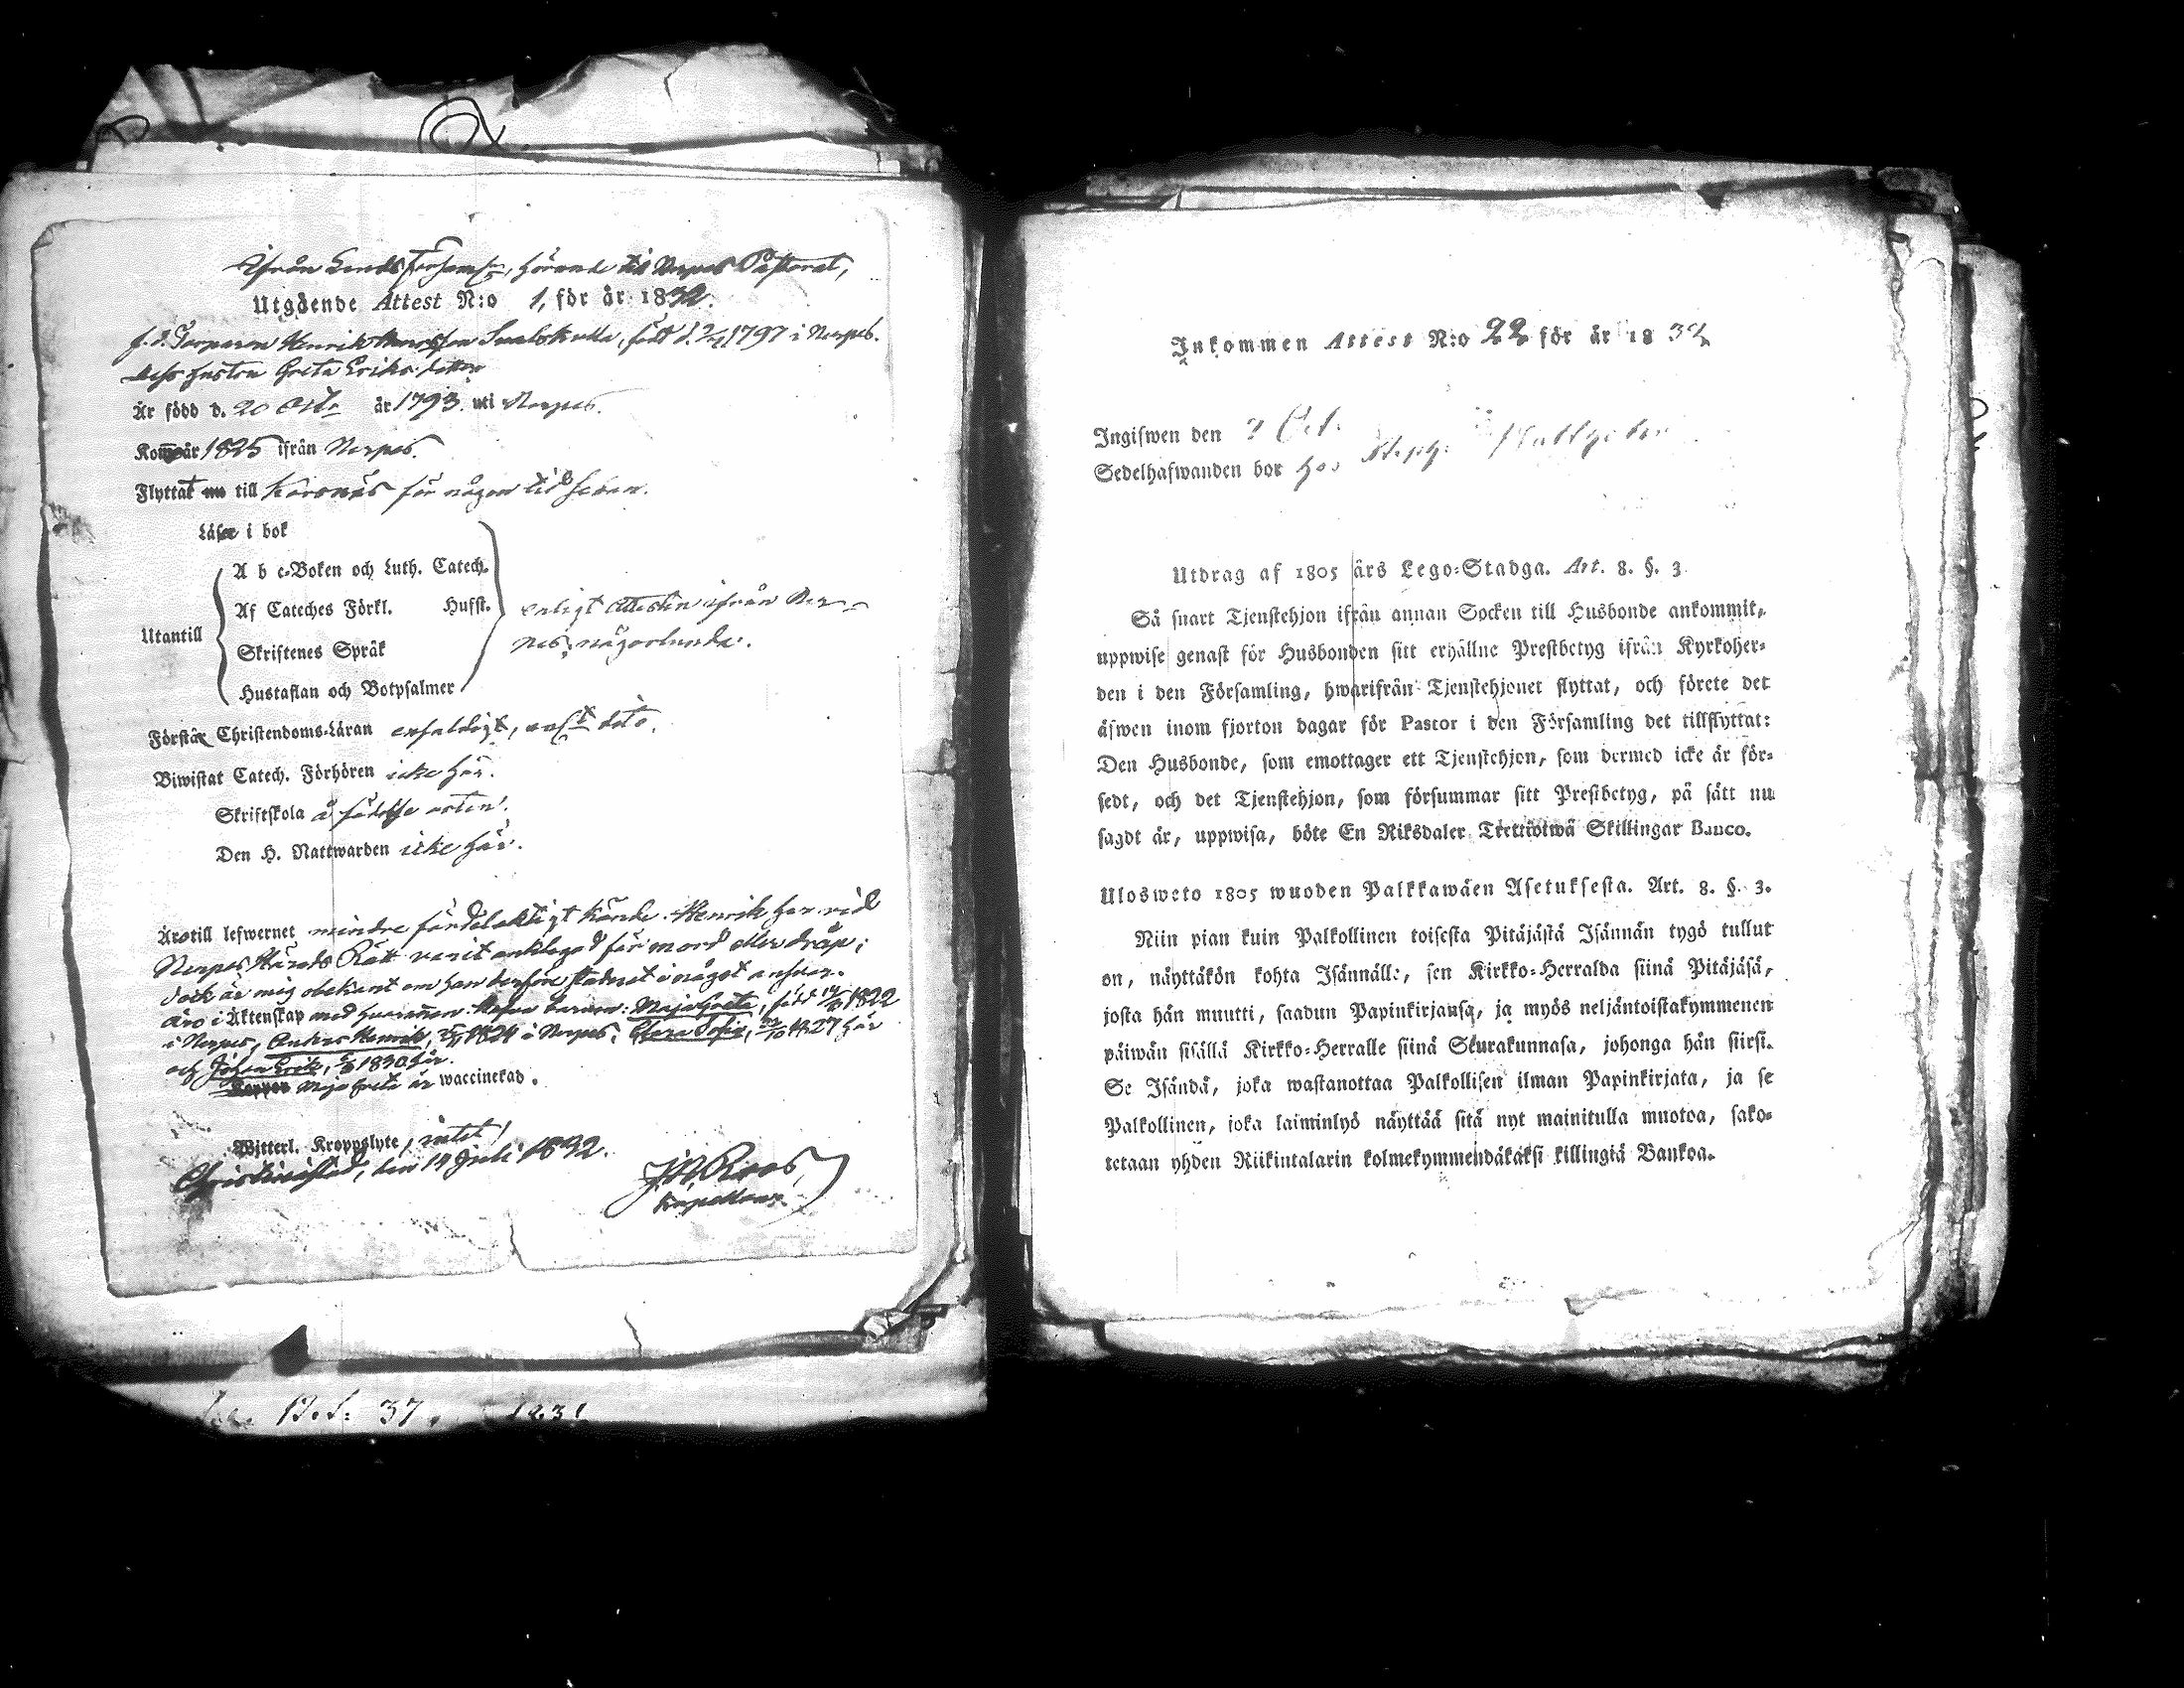 Ifrån Lands församl:n, hörande till Nerpes Pastorat,
Utgående Attest N:o 1, för år 1832.
f. d. Torparen Henrik Svalskulla, född d. 1797 i Nerpes.
dess hustru Greta Eriks dotter
Är född d. 20 Oct. år 1793. uti Nerpes.
Kom år 1825 ifrån Nerpes.
Flyttat nu till Korsnäs för någon tid sedan.
Läser i bok
A b c-Boken och Luth. Catech.
Af Cateches Förkl. Husft.
Utantill
Skriftenes Språk
Hustaflan och Botpsalmer
enligt attesten ifrån Ner-
pes någorlunda.
Förstår Christendoms-Läran enfaldigt, dito.
Biwistat Catech. Förhören icke här.
Skriftskola å födelse orten.
Den H. Nattwarden icke här.
Äro till lefwernet mindre fördelaktigt kände. Henrik har vid
Nerpes Härads Rätt varit anklagad för mord eller dråp;
dock är mig obekant om han derföre stadnat i något answar.
äro i Äktenskap med hvarannan. Barnen: Maja Greta, född 1822
i Nerpes, Anders Henrik, 1824 i Nerpes, Clara Sofia, 1827 här
och Johan Erik, 1830 här.
Koppor Maja Greta är waccinerad.
Witterl. Kroppslyte, intet.
Christinestad, den 14 Juli 1832.
J. W. Roos,
Kapellan.
37. 1831
Inkommen Attest N:o 22 för år 18 32
Ingifwen den 2 Oct.
Sedelhafwanden bor hos
Utdrag af 1805 års Lego-Stadga. Art. 8. §. 3
Så snart Tjenstehjon ifrån annan Socken till Husbonde ankommit,
uppwise genast för Husbonden sitt erhållne Prestbetyg ifrån Kyrkoher-
den i den Församling, hwarifrån Tjenstehjonet flyttat, och förete det
äfwen inom fjorton dagar för Pastor i den Församling det tillflyttat:
Den Husbonde, som emottager ett Tjenstehjon, som dermed icke är för-
sedt, och det Tjenstehjon, som försummar sitt Prestbetyg, på sätt nu
sagdt är, uppwisa, böte En Riksdaler Trettiotwå Skillingar Banco.
Ulosweto 1805 wuoden Palkkawäen Asetuksesta. Art. 8. §. 3.
Niin pian kuin Palkollinen toisesta Pitäjästä Isännän tygö tullut
on, näyttäkön kohta Isännälle, sen Kirkko-Herralda siinä Pitäjäsä,
josta hän muutti, saadun Papinkirjansa, ja myös neljäntoistakymmenen
päiwän sisällä Kirkko-Herralle siinä Seurakunnasa, johonga hän siirsi.
Se Isändä, joka wastanottaa Palkollisen ilman Papinkirjata, ja se
Palkollinen, joka laiminlyö näyttää sitä nyt mainitulla muotoa, sako-
tetaan yhden Riikintalarin kolmekymmendäkäksi killingiä Bankoa.